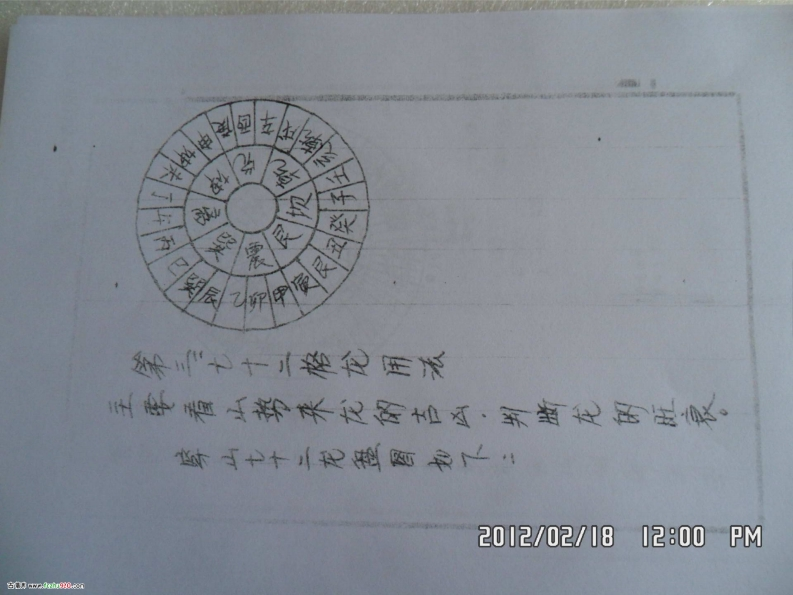 壬
子
癸
丑
艮
寅
甲
卯
乙
辰
巽
巳
丙
午
丁
未
坤
申
庚
酉
辛
戌
乾
亥
坎
艮
震
巽
離
坤
兌
乾
第三:七十二格龙用法
主要看山势来龙的吉凶.判断龙的旺衰。
穿山七十二龙盘图如下:
2012/02/18 12:00 PM